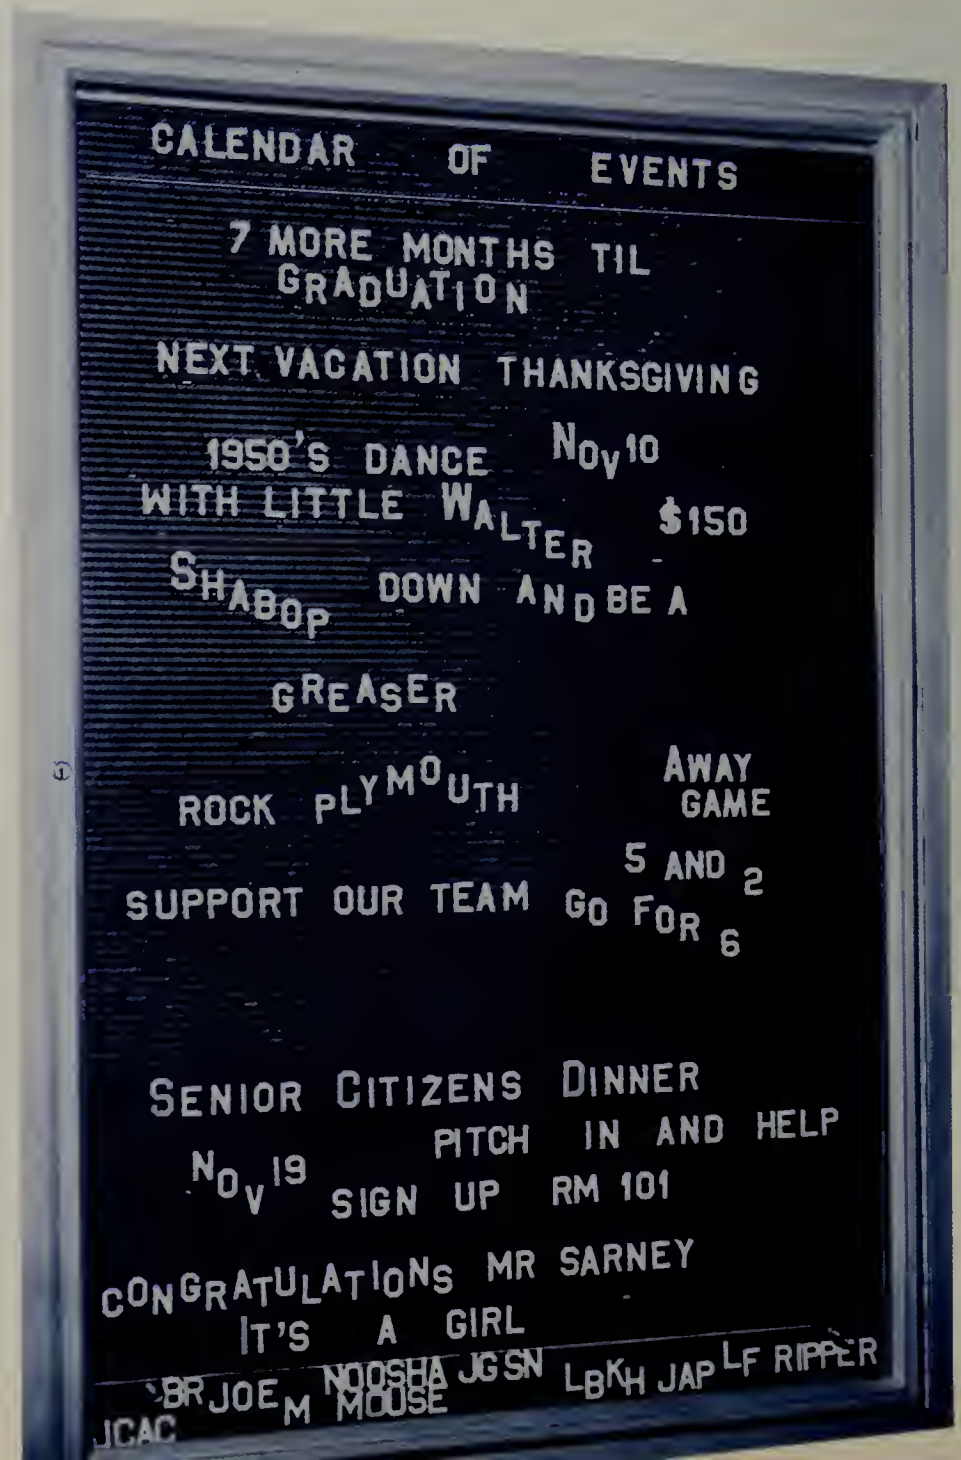 CALENDAR OF EVENTS
7 MORE MONTHS TIL
GRADUATION
NEXT VACATION THANKSGIVING
1950'S DANCE NOV 10
WITH LITTLE WALTER $150
SHABOP DOWN AND BE A
GREASER
ROCK PLYMOUTH AWAY
GAME
5 AND 2
SUPPORT OUR TEAM GO FOR 6
SENIOR CITIZENS DINNER
PITCH IN AND HELP
NOV 19 SIGN UP RM 101
CONGRATULATIONS MR SARNEY
IT'S A GIRL
BR JOE M NOOSHA JG SN LBKH JAP LF RIPPER
MOUSE
JCAC